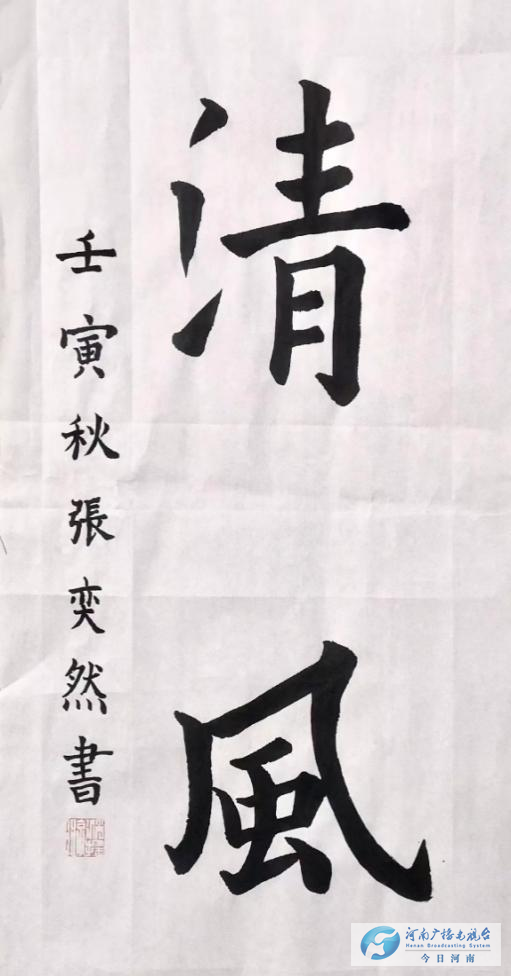 清風
壬寅秋張奕然書
河南广播电视台
Henan Broadcasting System
今日河南